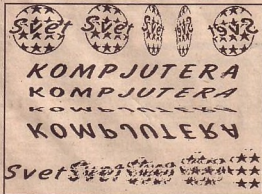 Svet Svet Svet Svet Svet
KOMPJUTERA
KOMPJUTERA
KOMPJUTERA
KOMPJUTERA
Svet Svet